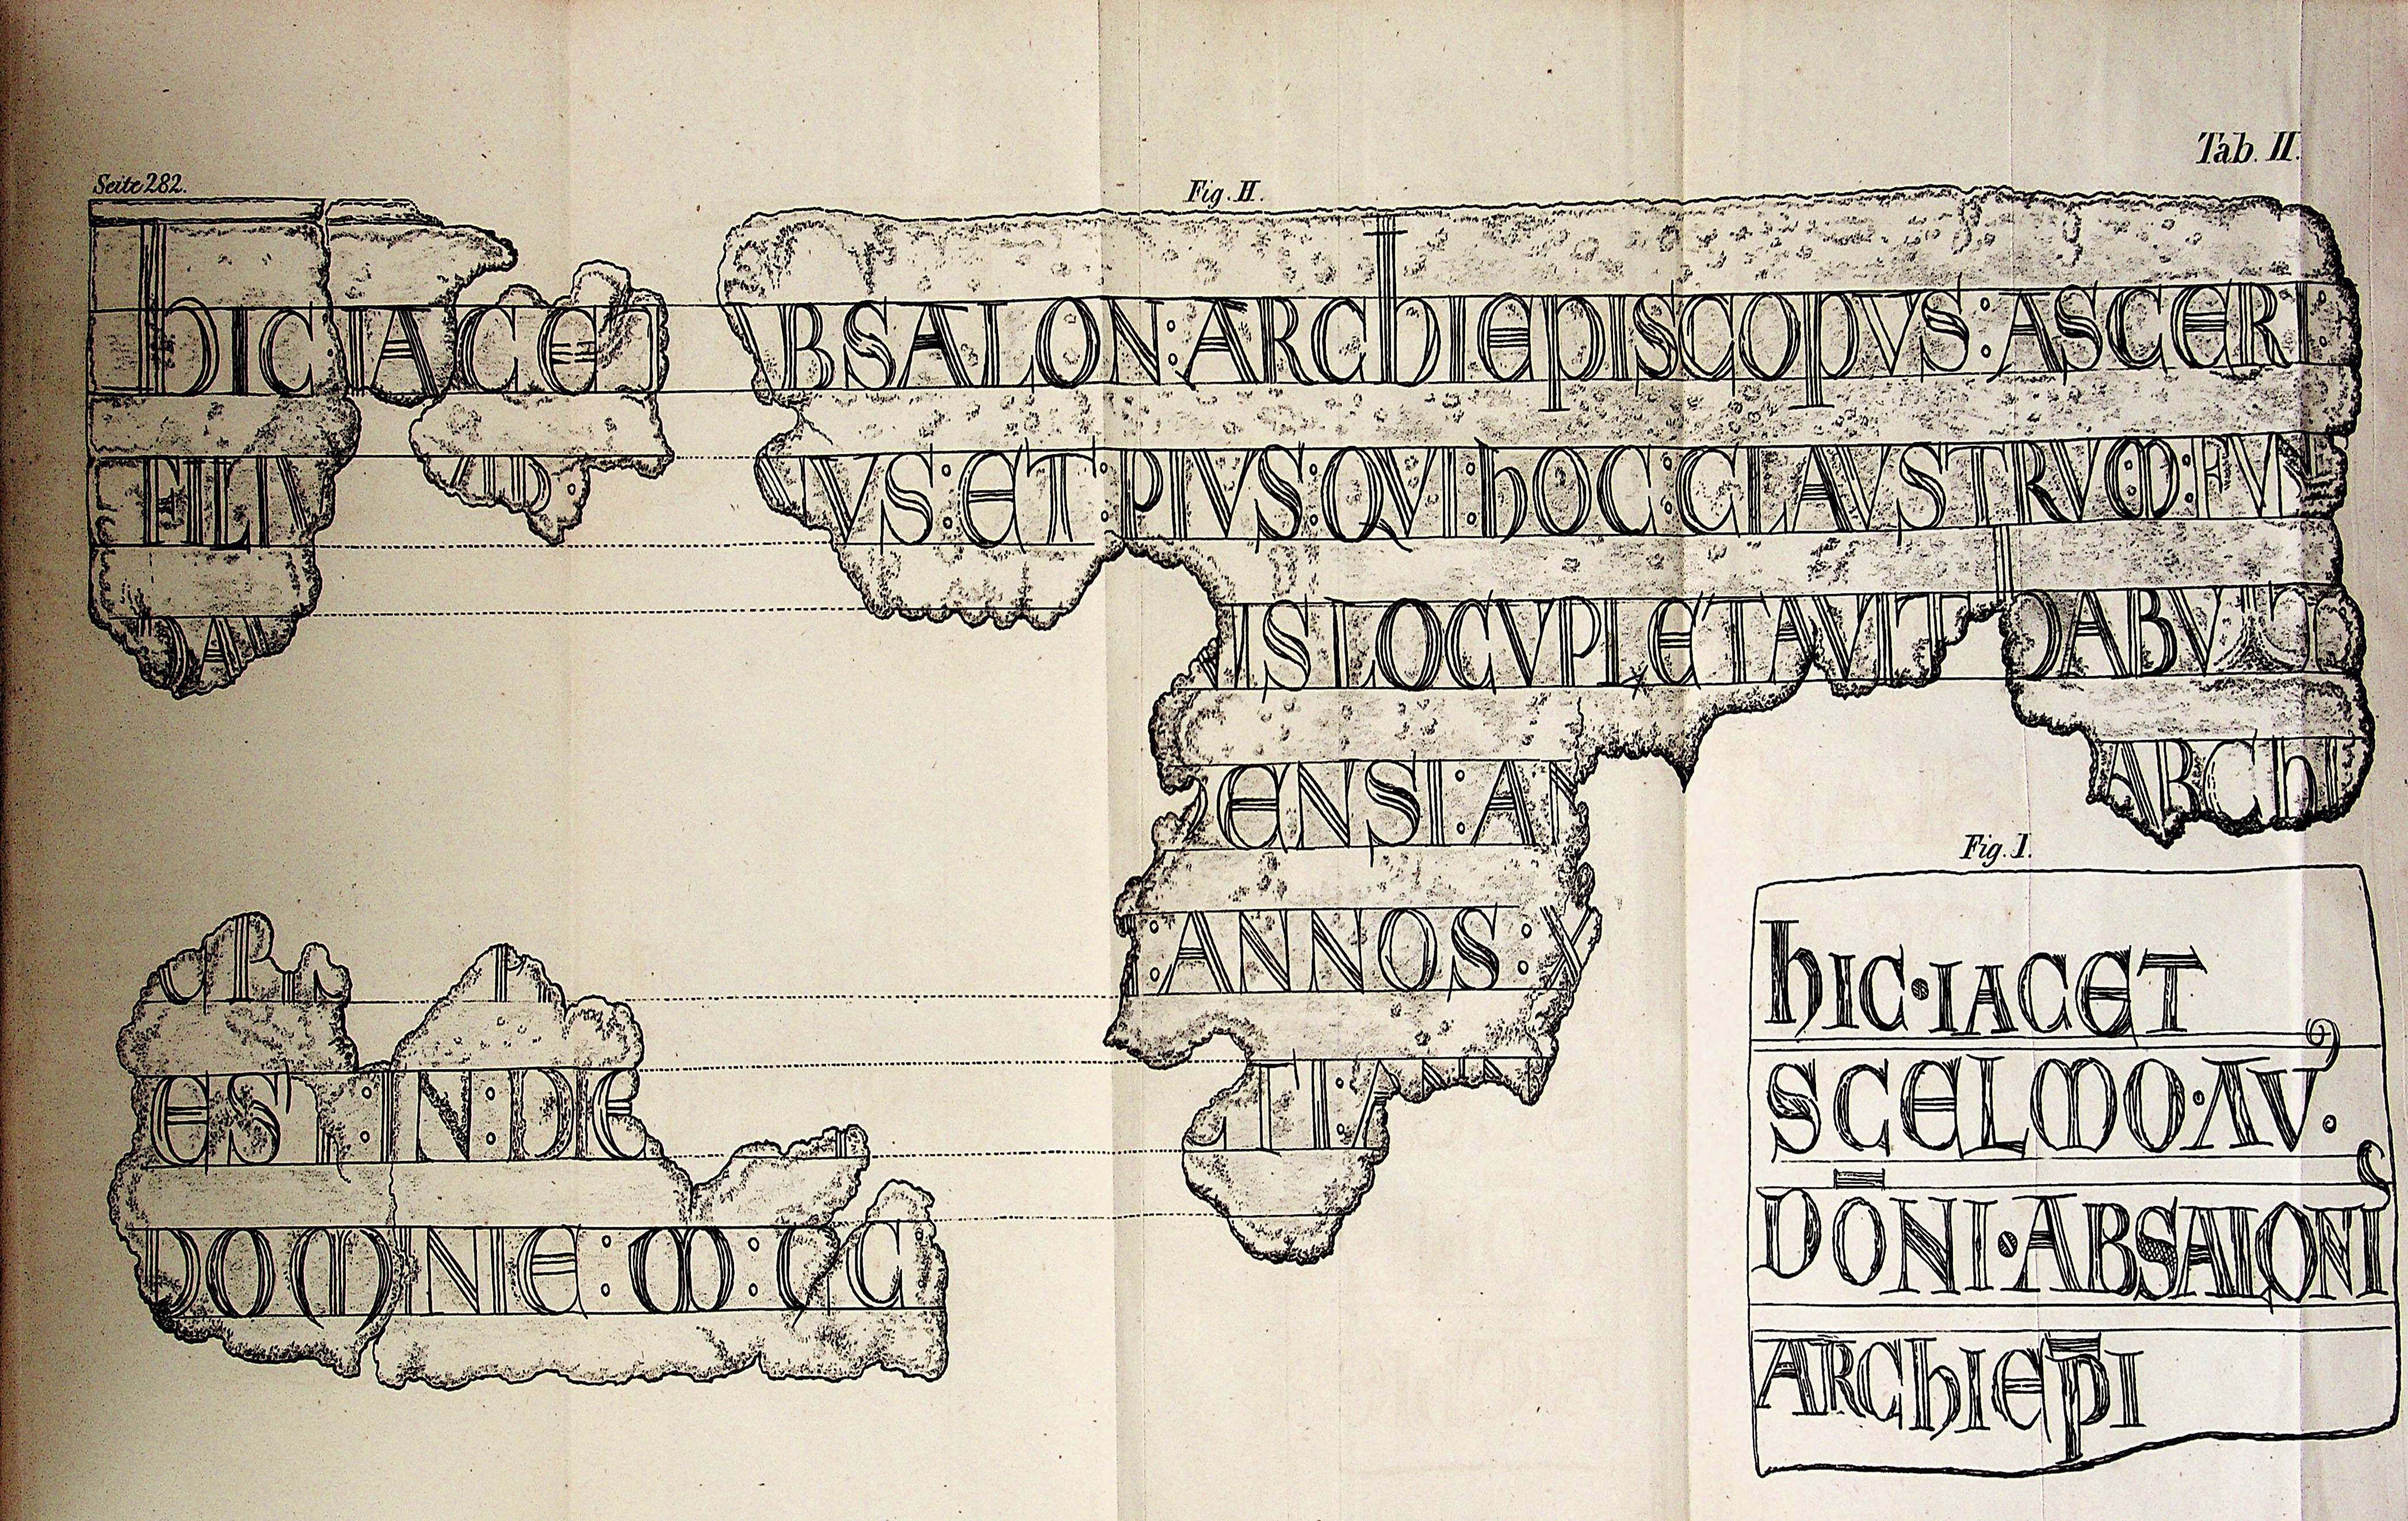 Tab. II.
Seite 282.
Fig. II.
hIC IACET ABSALON : ARChIEPISCOPVS : ASCERI
FILIV VS : ET : PIVS : QVI : hOC : CLAVSTRVM : FVN
DA NIS LOCVPLETAVIT DABVIT
ENSI : AN ARChI
: ANNOS : X
EST : IN : DIE TI : A
DOMINIE : M : CC
Fig. I.
hIC · IACET
SCELMO · AV.
DONI · ABSALONIS
ARChIEPI